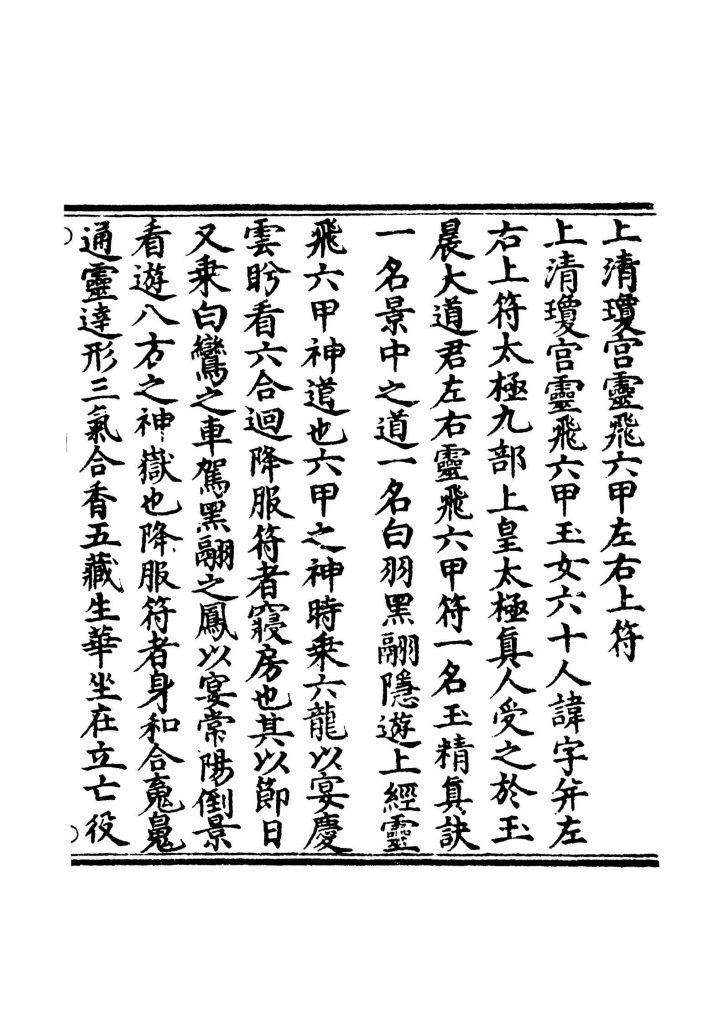 上清瓊宮靈飛六甲左右上符
上清瓊宮靈飛六甲玉女六十人諱字并左
右上符太極九部上皇太極真人受之於玉
晨大道君左右靈飛六甲符一名玉精真訣
一名景中之道一名白羽黑翮隱遊上經靈
飛六甲神道也六甲之神時乘六龍以宴慶
雲眄看六合迴降服符者寢房也其以節日
又乘白鸞之車駕黑翮之鳳以宴常陽倒景
看遊八方之神嶽也降服符者身和合䰟䰟
通靈達形三氣合香五藏生華坐在立亡役